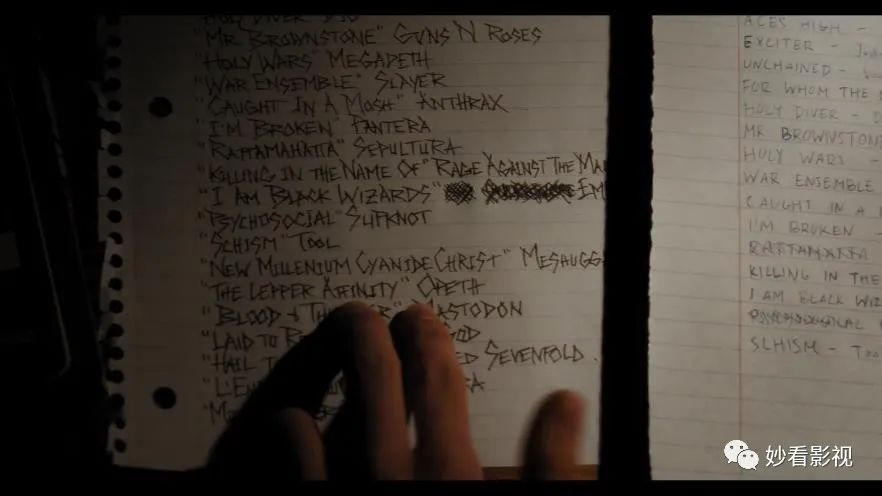 HOLY DIVER" DIO
"MR. BROWNSTONE" GUNS N ROSES
"HOLY WARS" MEGADETH
"WAR ENSEMBLE" SLAYER
"CAUGHT IN A MOSH" ANTHRAX
"I'M BROKEN" PANTERA
"RATTAMAHATTA" SEPULTURA
"KILLING IN THE NAME OF" RAGE AGAINST THE MA
"I AM BLACK WIZARDS" EM
"PSYCHOSOCIAL" SLIPKNOT
"SCHISM" TOOL
"NEW MILLENIUM CYANIDE CHRIST" MESHUGG
"THE LEPPER AFFINITY" OPETH
"BLOOD + TH MASTODON
"LAID TO R GOD
"HAIL T ED SEVENFOLD.
"L'E
"M
ACES HIGH -
EXCITER - Jud
UNCHAINED -
FOR WHOM THE
HOLY DIVER - D
MR BROWNSTON
HOLY WARS -
WAR ENSEMBLE
CAUGHT IN A
I'M BROKEN -
RATTAMATTA
KILLING IN THE
I AM BLACK WIZ
SCHISM - Too
妙看影视